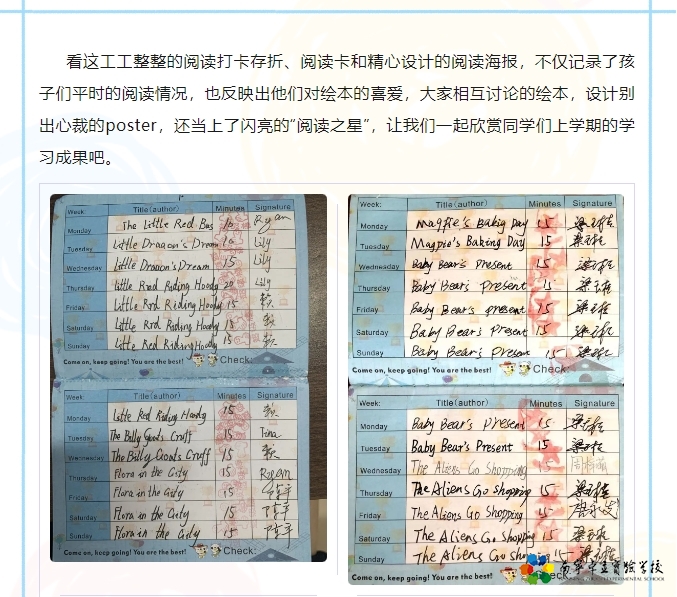 看这工工整整的阅读打卡存折、阅读卡和精心设计的阅读海报，不仅记录了孩
子们平时的阅读情况，也反映出他们对绘本的喜爱，大家相互讨论的绘本，设计别
出心裁的poster，还当上了闪亮的“阅读之星”，让我们一起欣赏同学们上学期的学
习成果吧。
Week: Title(author) Minutes Signature
Monday The Little Red Bas 10 Ryan
Tuesday Little Dragon's Dream 10 Lily
Wednesday Little Dragon's Dream 15 Lily
Thursday Little Red Riding Hoody 20 Lily
Friday Little Red Riding Hoody 15
Saturday Little Red Riding Hoody 15
Sunday Little Red Riding Hoody 15
Come on, keep going! You are the best! Check:
Week: Title(author) Minutes Signature
Monday Little Red Riding Hoody 15
Tuesday The Billy Goats Gruff 15 Tina
Wednesday The Billy Goats Gruff 15
Thursday Flora in the City 15 Ryan
Friday Flora in the City 15
Saturday Flora in the City 15
Sunday Flora in the City 15
Come on, keep going! You are the best! Check:
Week: Title(author) Minutes Signature
Monday Magpie's Baking Day 15
Tuesday Magpie's Baking Day 15
Wednesday Baby Bear's Present 15
Thursday Baby Bear's Present 15
Friday Baby Bear's present 15
Saturday Baby Bear's Present 15
Sunday Baby Bear's Present 15
Come on, keep going! You are the best! Check:
Week: Title(author) Minutes Signature
Monday Baby Bear's Present 15
Tuesday Baby Bear's Present 15
Wednesday The Aliens Go Shopping 15
Thursday The Aliens Go Shopping 15
Friday The Aliens Go Shopping 15
Saturday The Aliens Go Shopping 15
Sunday The Aliens Go Shopping 15
Come on, keep going! You are the best! Check
EXPERIMENTAL SCHOOL